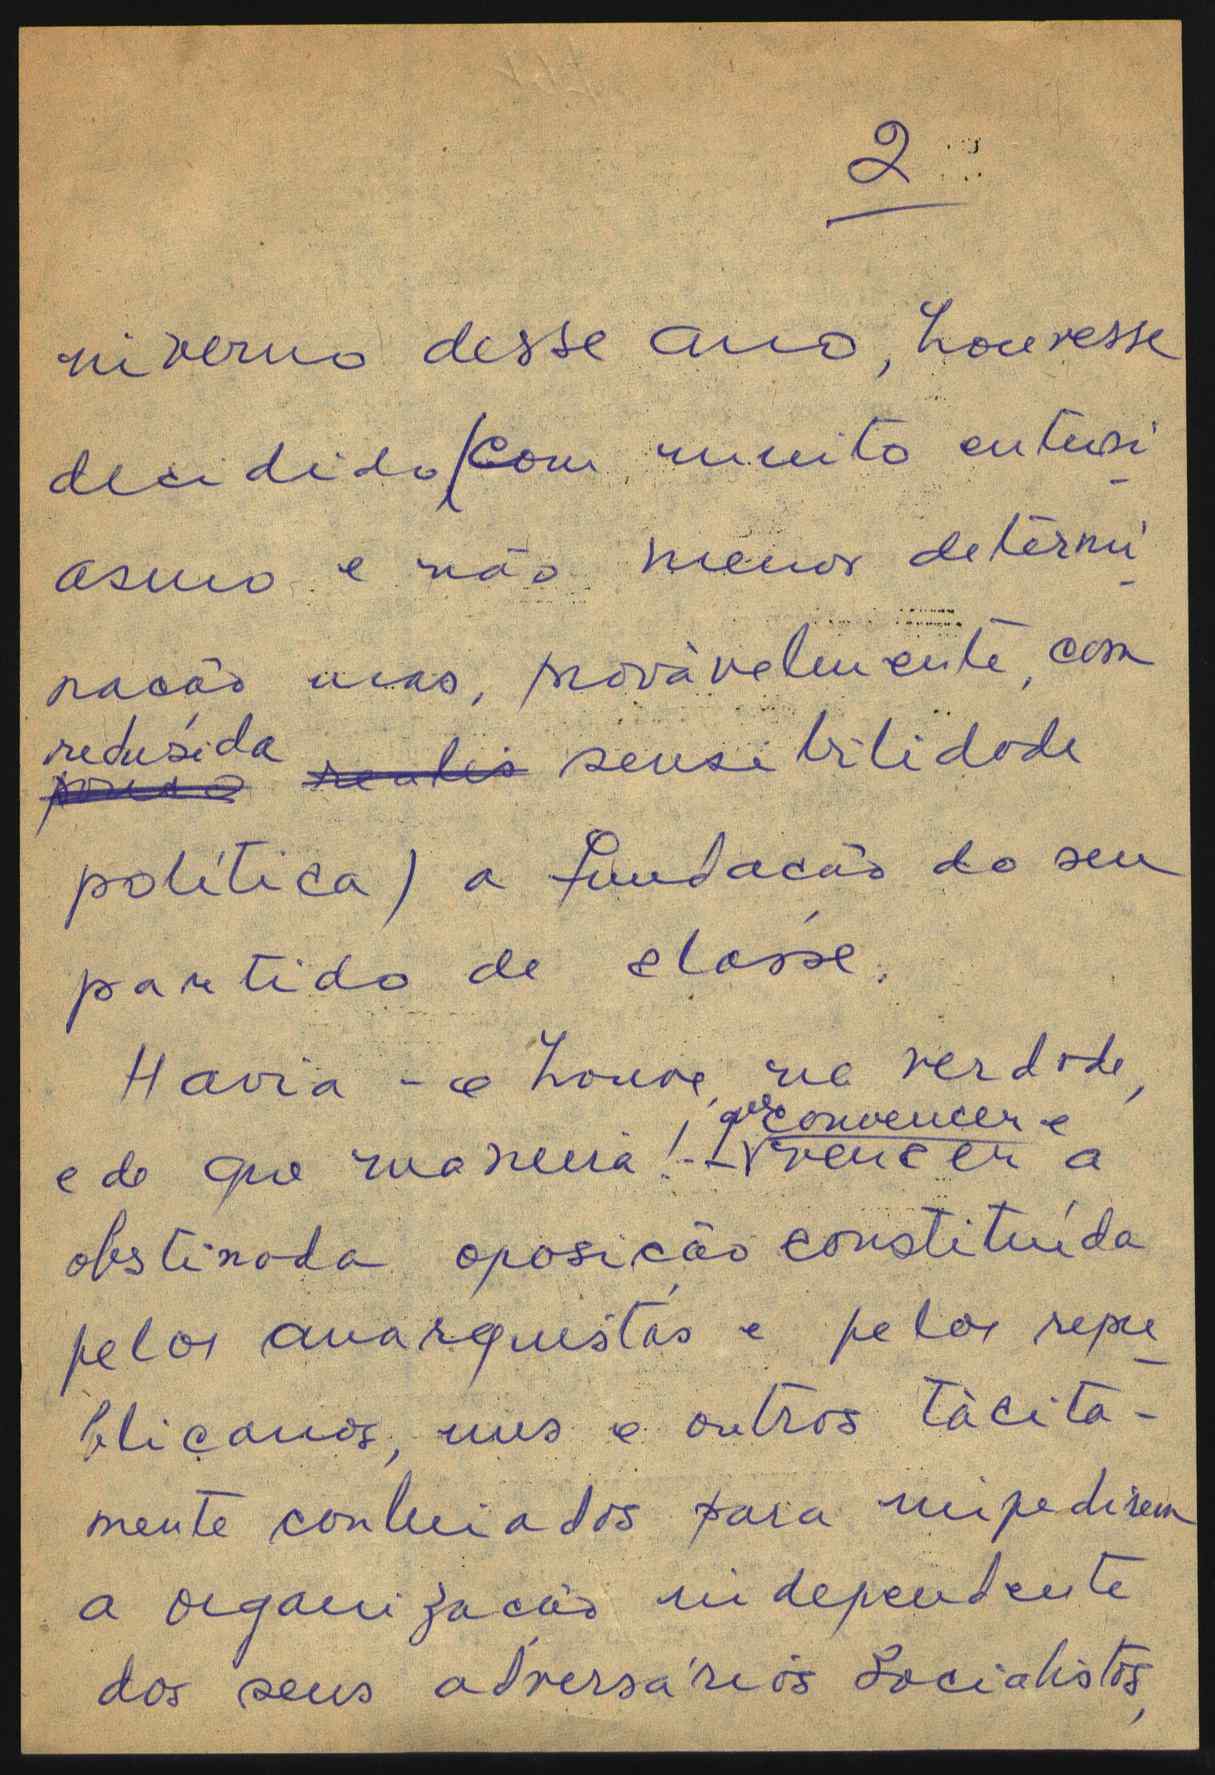 2
inverno desse ano, houvesse
decidido (com muito entusi-
asmo e não menos determi-
nação mas, provàvelmente, com
redusida sensibilidade
política) a fundação do seu
partido de classe.
Havia - e houve, na verdade,
e de que maneira! - que convencer e
vencer a
obstinada oposição constituída
pelos anarquistas e pelos repu-
blicanos, uns e outros tàcita-
mente conluiados para impedirem
a organização independente
dos seus adversários socialistas,